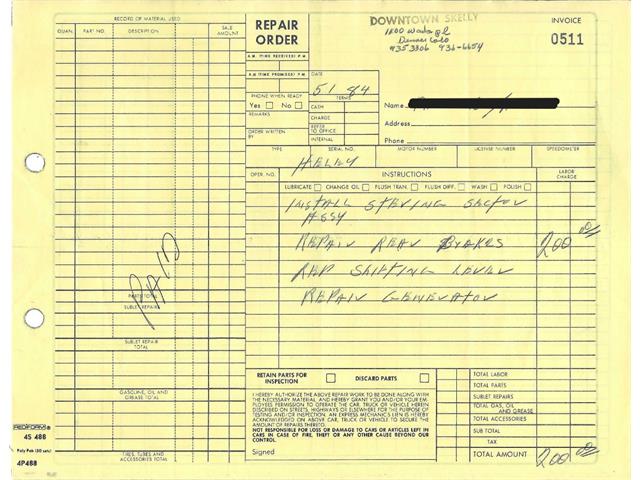 RECORD OF MATERIAL USED
QUAN. PART NO. DESCRIPTION SALE AMOUNT
REPAIR ORDER
DOWNTOWN SKELLY
1800 Wadsworth
Denver Colo
935 3306 936-6654
INVOICE
0511
A.M. (TIME RECEIVED) P.M.
A.M. (TIME PROMISED) P.M.
PHONE WHEN READY
Yes No
REMARKS
ORDER WRITTEN BY
DATE
51 84
TERMS
CASH
CHARGE
REFER TO OFFICE
INTERNAL
Name
Address
Phone
TYPE SERIAL NO. MOTOR NUMBER LICENSE NUMBER SPEEDOMETER
HELLEY
OPER. NO. INSTRUCTIONS LABOR CHARGE
LUBRICATE CHANGE OIL FLUSH TRAN. FLUSH DIFF. WASH POLISH
INSTALL STEVING SECTOV
ASSY
REPAIV REAV BVAKES 200 00/
REP SHIFTING LEVEV
REPAIV GENEVATOV
PAID
PARTS TOTAL
SUBLET REPAIRS
SUBLET REPAIR TOTAL
GASOLINE, OIL AND GREASE TOTAL
TIRES, TUBES AND ACCESSORIES TOTAL
RETAIN PARTS FOR INSPECTION DISCARD PARTS
I HEREBY AUTHORIZE THE ABOVE REPAIR WORK TO BE DONE ALONG WITH
THE NECESSARY MATERIAL, AND HEREBY GRANT YOU AND/OR YOUR EM-
PLOYEES PERMISSION TO OPERATE THE CAR, TRUCK OR VEHICLE HEREIN
DESCRIBED ON STREETS, HIGHWAYS OR ELSEWHERE FOR THE PURPOSE OF
TESTING AND/OR INSPECTION. AN EXPRESS MECHANICS LIEN IS HEREBY
ACKNOWLEDGED ON ABOVE CAR, TRUCK OR VEHICLE TO SECURE THE
AMOUNT OF REPAIRS THERETO.
NOT RESPONSIBLE FOR LOSS OR DAMAGE TO CARS OR ARTICLES LEFT IN
CARS IN CASE OF FIRE, THEFT OR ANY OTHER CAUSE BEYOND OUR
CONTROL.
Signed
TOTAL LABOR
TOTAL PARTS
SUBLET REPAIRS
TOTAL GAS, OIL AND GREASE
TOTAL ACCESSORIES
SUB TOTAL
TAX
TOTAL AMOUNT 200 00/
REDIFORM®
4S 488
Poly Pak (50 sets)
4P488